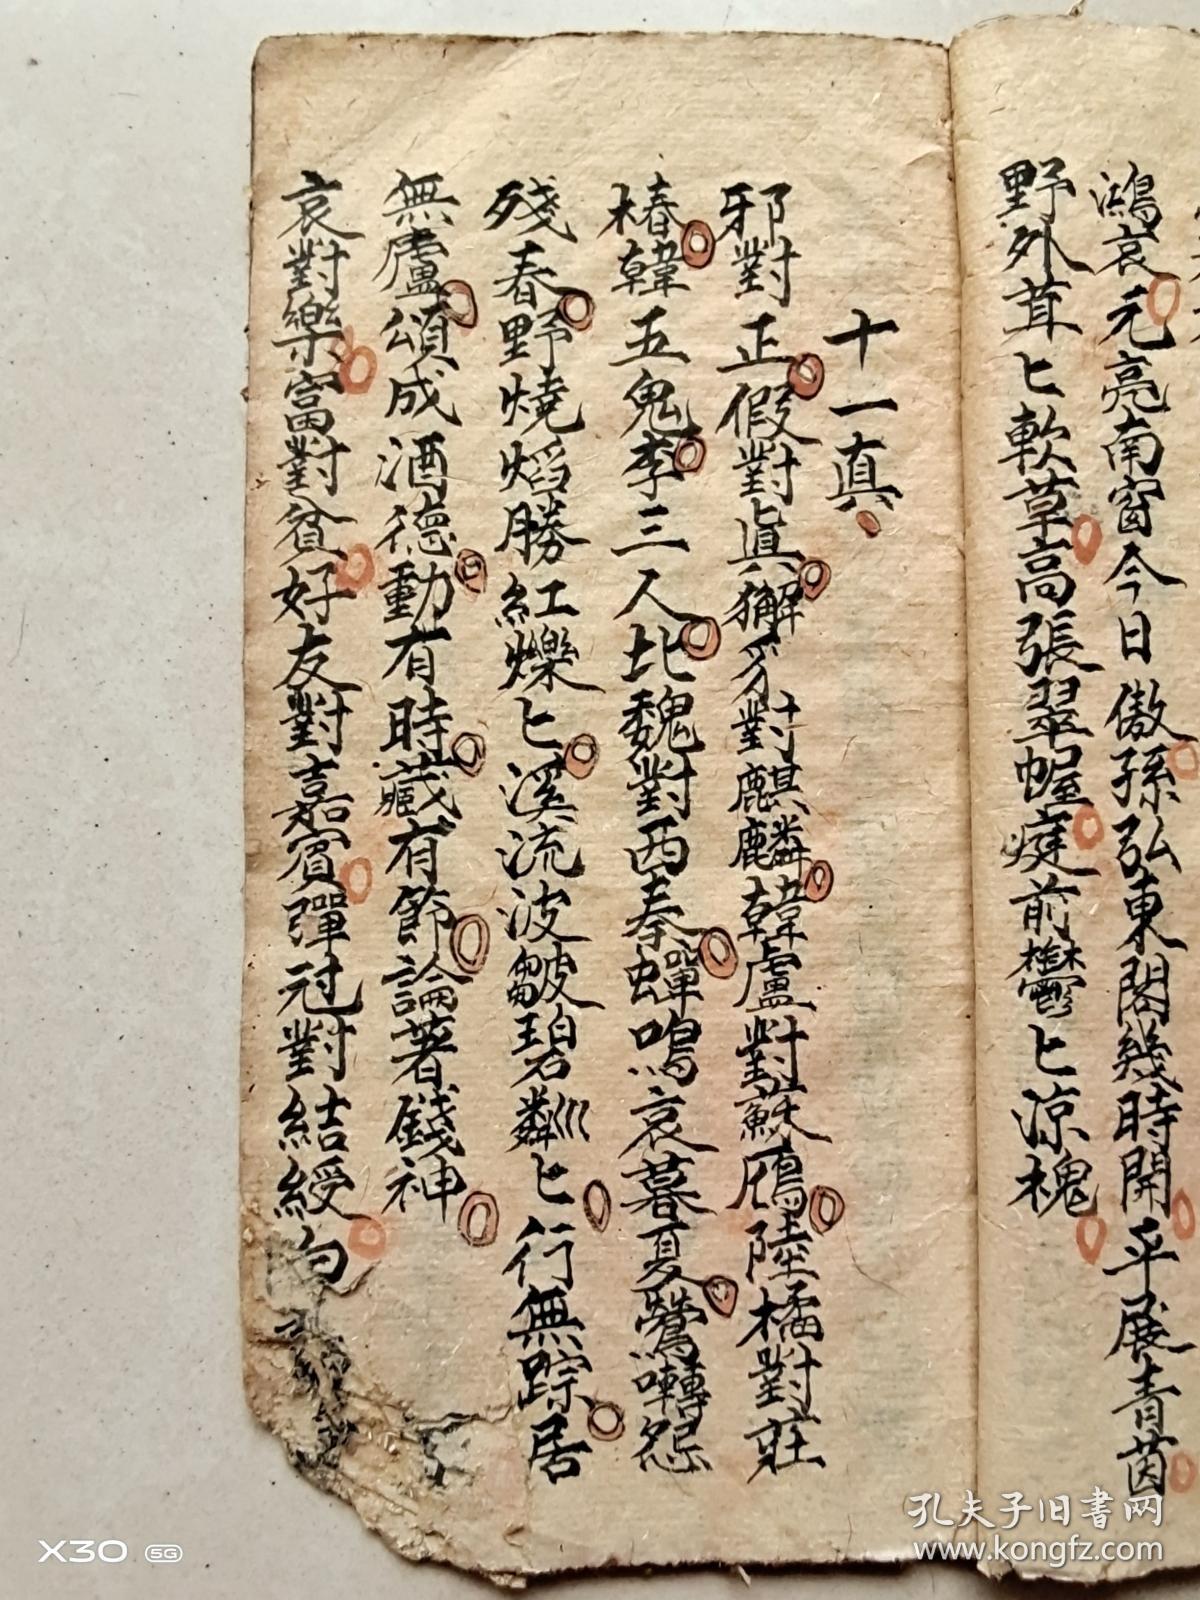 鴻哀元亮南窗今日傲孫弘東閣幾時開平展青茵
野外茸匕軟草高張翠幄庭前鬱匕涼槐
十一真
邪對正假對眞獬豸對麒麟韓盧對蘇鴈陸橘對莊
椿韓五鬼李三人北魏對西秦蟬鳴哀暮夏鶯囀怨
殘春野燒熖騰紅爍匕溪流波皺碧粼匕行無踪居
無廬頌成酒德動有時藏有節論著錢神
哀對樂富對貧好友對嘉賓彈冠對結綬白
孔夫子旧書网
www.kongfz.com
X30 5G